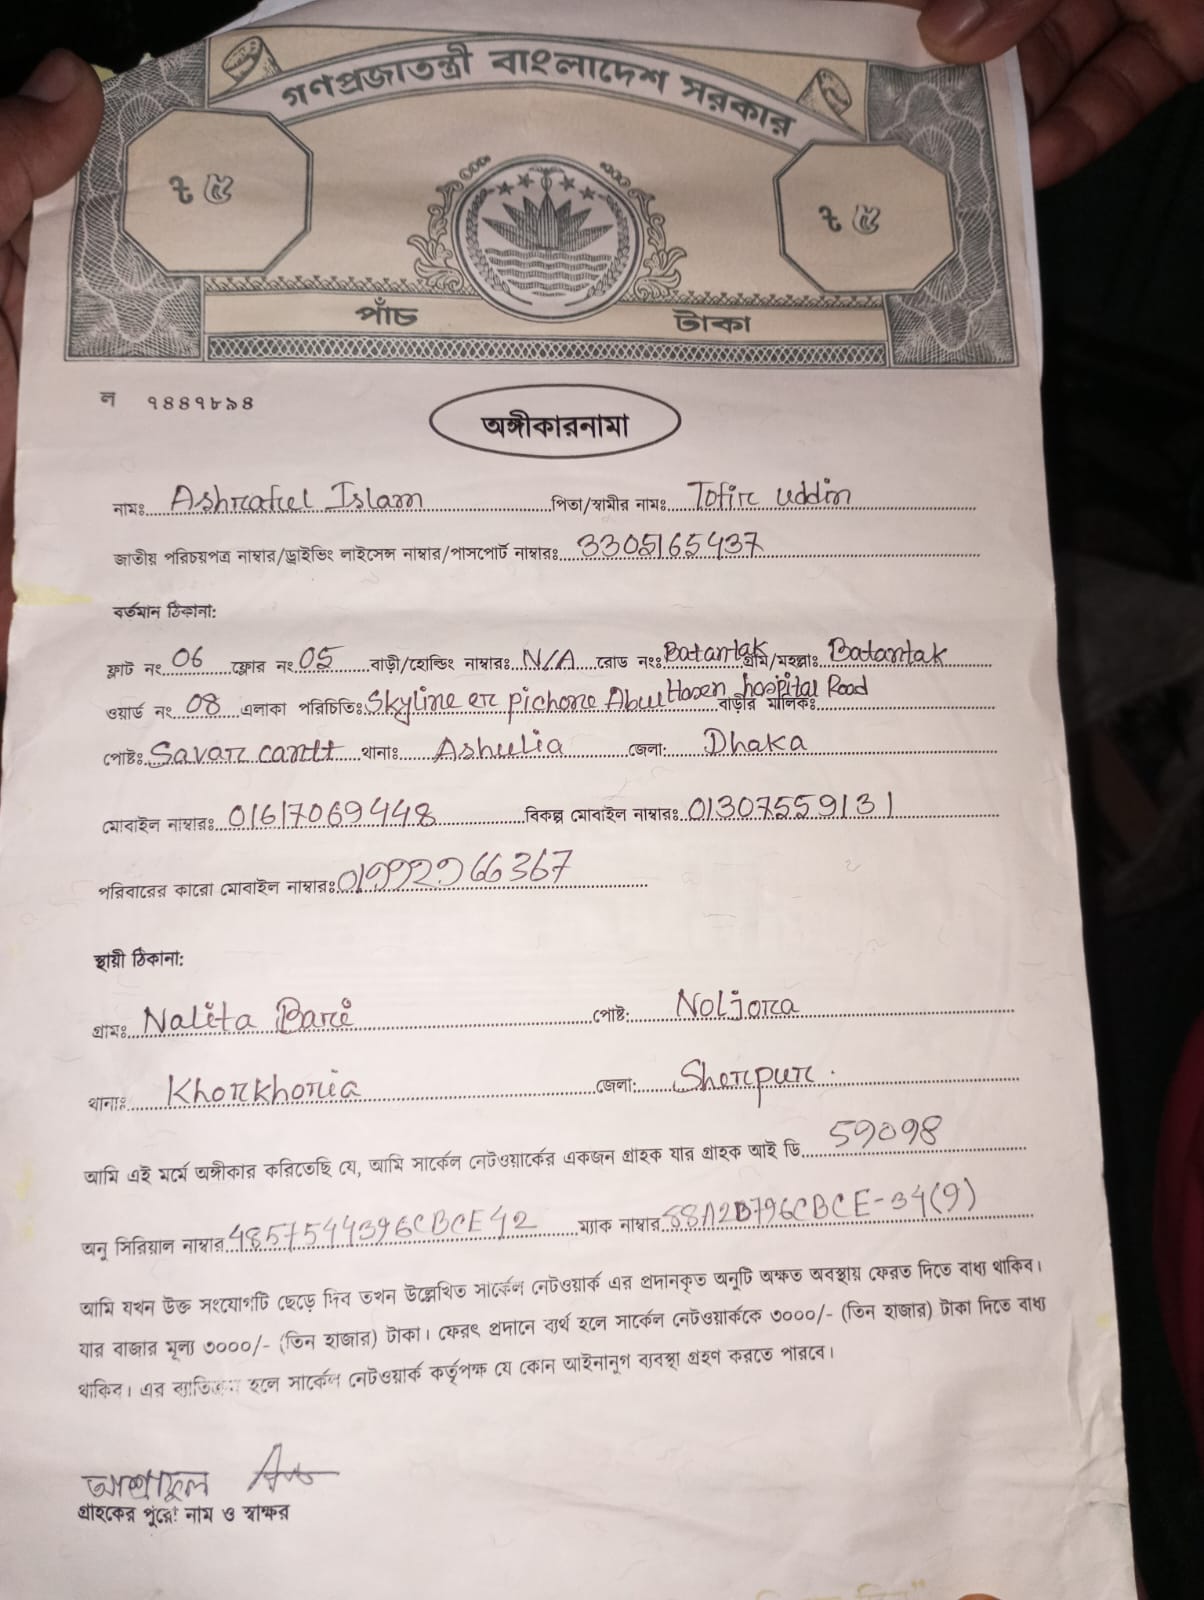 গণপ্রজাতন্ত্রী বাংলাদেশ সরকার
৳ ৫ ৳ ৫
পাঁচ টাকা
ল ৭৪৪৭৮৯৪
অঙ্গীকারনামা
নামঃ Ashraful Islam পিতা/স্বামীর নামঃ Tofir uddin
জাতীয় পরিচয়পত্র নাম্বার/ড্রাইভিং লাইসেন্স নাম্বার/পাসপোর্ট নাম্বারঃ 3305165437
বর্তমান ঠিকানা:
ফ্লাট নং 06 ফ্লোর নং 05 বাড়ী/হোল্ডিং নাম্বারঃ N/A রোড নংঃ Batantak গ্রাম/মহল্লাঃ Batantak
ওয়ার্ড নং 08 এলাকা পরিচিতিঃ Skyline er pichone Abul Hasen hospital Road বাড়ীর মালিকঃ
পোষ্টঃ Savar cantt থানাঃ Ashulia জেলা: Dhaka
মোবাইল নাম্বারঃ 01617069448 বিকল্প মোবাইল নাম্বারঃ 01307559131
পরিবারের কারো মোবাইল নাম্বারঃ
স্থায়ী ঠিকানা:
গ্রামঃ Nalita Bari পোষ্ট: Noljora
থানাঃ Khorkhoria জেলা: Sherpur.
আমি এই মর্মে অঙ্গীকার করিতেছি যে, আমি সার্কেল নেটওয়ার্কের একজন গ্রাহক যার গ্রাহক আই ডি 59098
অনু সিরিয়াল নাম্বার 4857544396CBCE42 ম্যাক নাম্বার
আমি যখন উক্ত সংযোগটি ছেড়ে দিব তখন উল্লেখিত সার্কেল নেটওয়ার্ক এর প্রদানকৃত অনুটি অক্ষত অবস্থায় ফেরত দিতে বাধ্য থাকিব।
যার বাজার মূল্য ৩০০০/- (তিন হাজার) টাকা। ফেরৎ প্রদানে ব্যর্থ হলে সার্কেল নেটওয়ার্ককে ৩০০০/- (তিন হাজার) টাকা দিতে বাধ্য
থাকিব। এর ব্যতিক্রম হলে সার্কেল নেটওয়ার্ক কর্তৃপক্ষ যে কোন আইনানুগ ব্যবস্থা গ্রহণ করতে পারবে।
আশরাফুল
গ্রাহকের পুরো নাম ও স্বাক্ষর